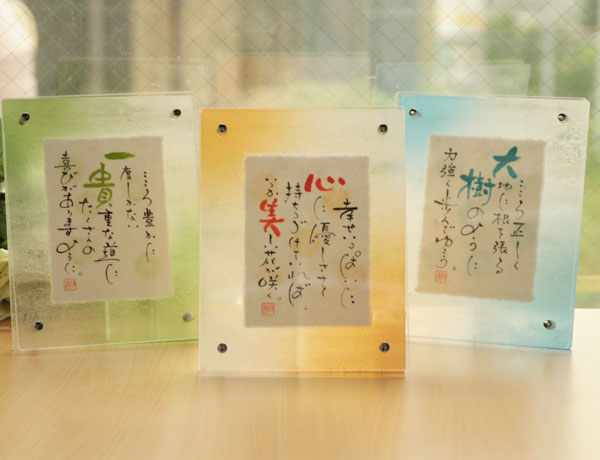 こころ豊かに
一度しかない
貴重な道に
たくさんの
喜びがありますように。
幸せいっぱいに
心に優しさを
持ちつづけていれば、
いつか美しい花が咲く。
こころ正しく
大地に根を張る
樹のように
力強く歩んでゆこう。